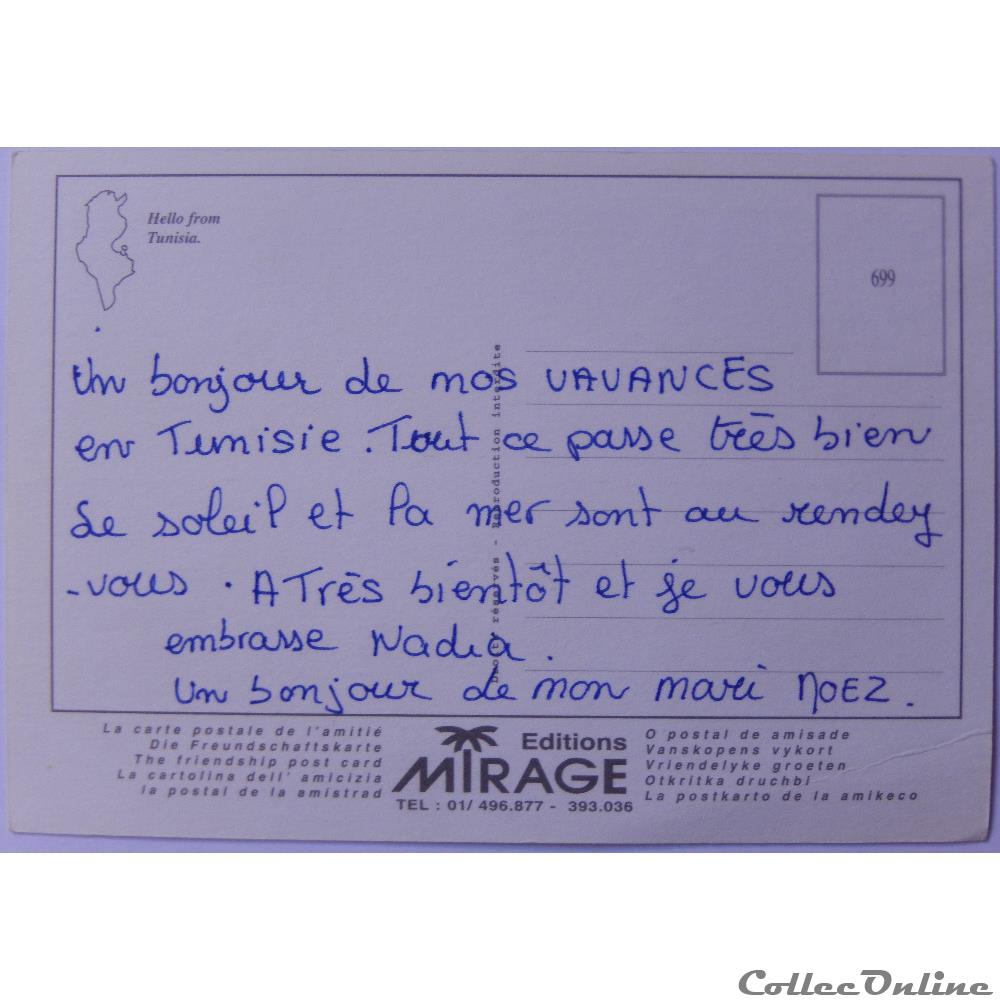 Hello from
Tunisia.
699
Un bonjour de mos VAVANCES
en Tunisie. Tout ce passe très bien
Le soleil et la mer sont au rendey
-vous. A Très bientôt et je vous
embrasse Nadia.
Un bonjour de mon mari MOEZ.
Droits réservés - Reproduction interdite
La carte postale de l'amitié
Die Freundschaftskarte
The friendship post card
La cartolina dell' amicizia
la postal de la amistrad
Editions
MIRAGE
TEL : 01/ 496.877 - 393.036
O postal de amisade
Vanskopens vykort
Vriendelyke groeten
Otkritka druchbi
La postkarto de la amikeco
CollecOnline